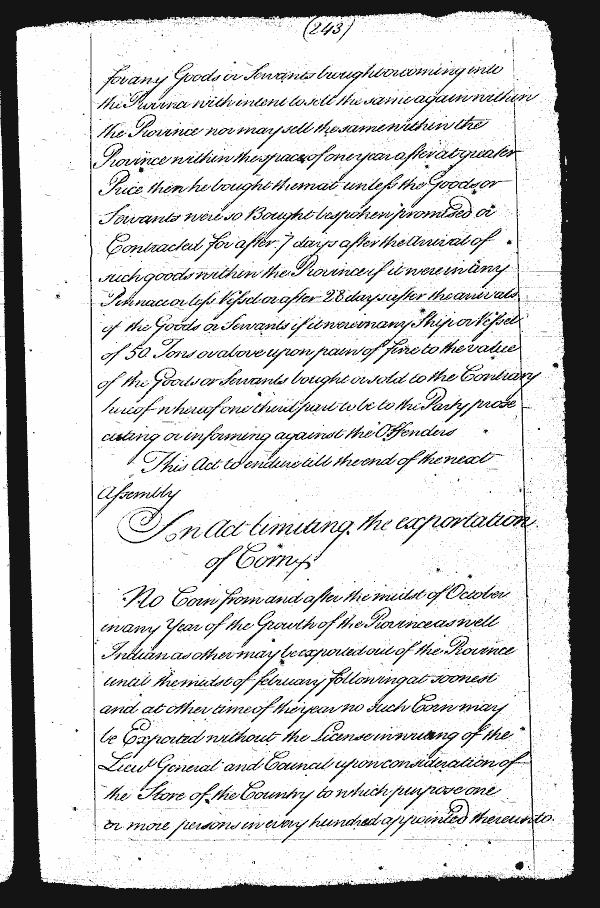 (243)
for any Goods or Servants brought or coming into
the Province with intent to sell the same again within
the Province nor may sell the same within the
Province within the space of one year after at greater
Price then he bought them at unless the Goods or
Servants were so Bought bespoken promised or
Contracted for after 7 days after the arrival of
such goods within the Province if it were in any
Pinnace or less Vessel or after 28 days after the arrivals
of the Goods or Servants if it were in any Ship or Vessel
of 50 Tons or above upon pain of fine to the value
of the Goods or Servants bought or sold to the Contrary
hereof whereof one third part to be to the Party prose
cuting or informing against the Offenders
This Act to endure till the end of the next
Assembly
An Act limiting the exportation
of Corn
No Corn from and after the midst of October
in any Year of the Growth of the Province as well
Indian as other may be exported out of the Province
until the midst of february following at soonest
and at other time of the year no such Corn may
be Exported without the License in writing of the
Lieut General and Council upon consideration of
the Store of the Country to which purpose one
or more persons in every hundred appointed thereunto